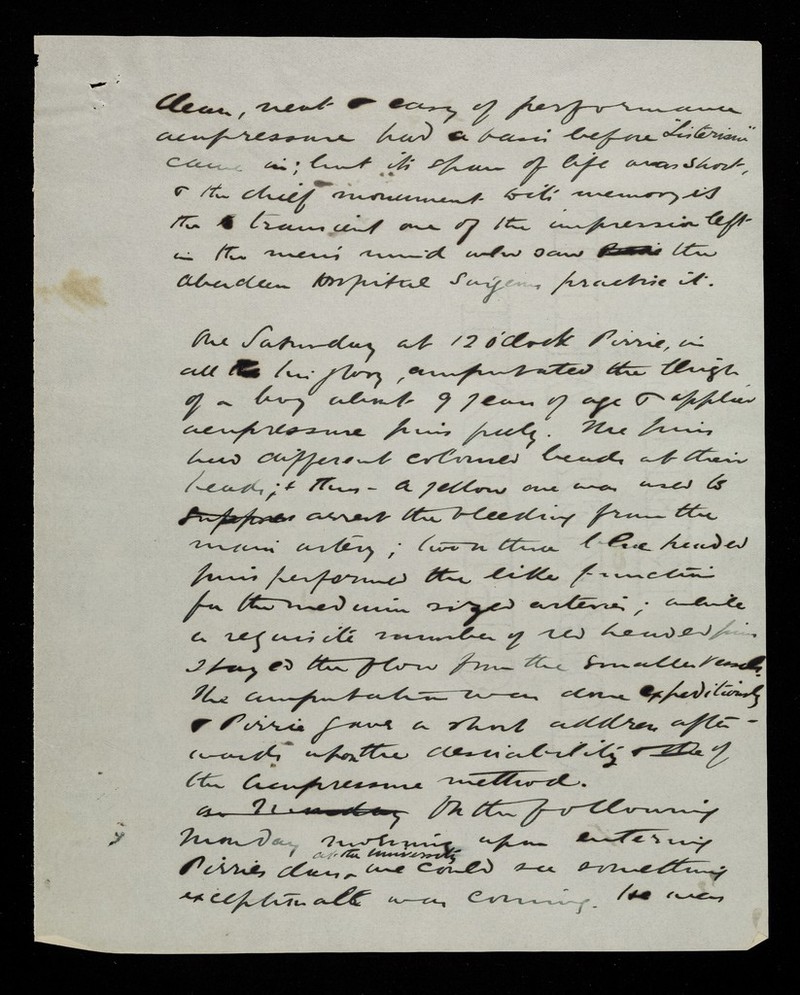 clean, neat & easy of performance
acupressure had a basis before "Listerism"
came in; but its span of life was short,
& the chief monument to its memory is
the transient one of the impression left
in the men's mind who saw the
Aberdeen Hospital Surgeons practise it.
One Saturday at 12 o'clock Pirrie, in
all his glory, amputated the thigh
of a boy about 9 years of age & applied
acupressure pins freely. The pins
had different coloured beads at their
heads; & thus - a yellow one was used to
suppress arrest the bleeding from the
main artery; two or three blue headed
pins performed the like function
for the medium sized arteries; while
a requisite number of red headed pins
stayed the flow from the smaller vessels.
The amputation was done expeditiously
& Pirrie gave a short address after-
wards upon the desirability & the of
the acupressure method.
On the following
Monday morning upon entering
at the University
Pirries class we could see something
exceptionable was coming. He was